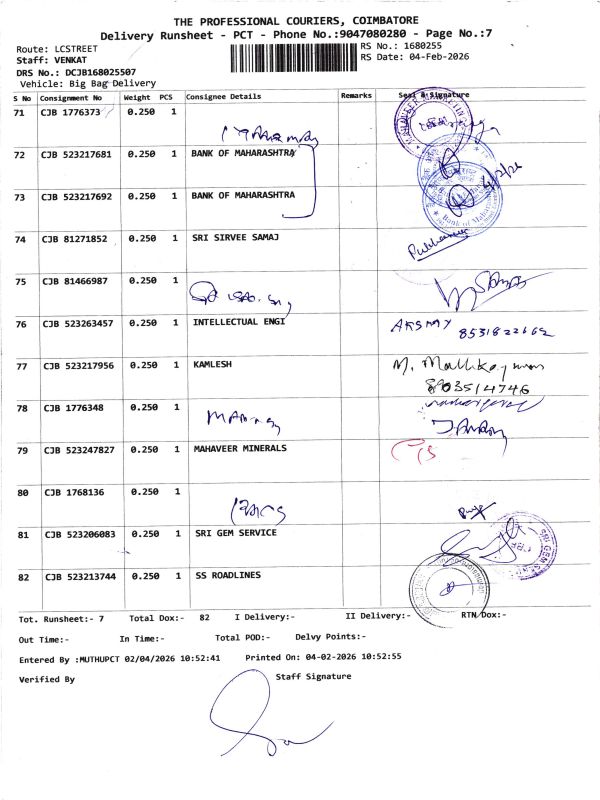 THE PROFESSIONAL COURIERS, COIMBATORE
Delivery Runsheet - PCT - Phone No.:9047080280 - Page No.:7
Route: LCSTREET
Staff: VENKAT
DRS No.: DCJB168025507
Vehicle: Big Bag Delivery
RS No.: 1680255
RS Date: 04-Feb-2026
S No Consignment No Weight PCS Consignee Details Remarks Seal & Signature
71 CJB 1776373 0.250 1
72 CJB 523217681 0.250 1 BANK OF MAHARASHTRA
4/2/26
73 CJB 523217692 0.250 1 BANK OF MAHARASHTRA
74 CJB 81271852 0.250 1 SRI SIRVEE SAMAJ
75 CJB 81466987 0.250 1
76 CJB 523263457 0.250 1 INTELLECTUAL ENGI AKSHAY
77 CJB 523217956 0.250 1 KAMLESH
78 CJB 1776348 0.250 1
79 CJB 523247827 0.250 1 MAHAVEER MINERALS
80 CJB 1768136 0.250 1
81 CJB 523206083 0.250 1 SRI GEM SERVICE
82 CJB 523213744 0.250 1 SS ROADLINES
Tot. Runsheet:- 7 Total Dox:- 82 I Delivery:- II Delivery:- RTN Dox:-
Out Time:- In Time:- Total POD:- Delvy Points:-
Entered By :MUTHUPCT 02/04/2026 10:52:41 Printed On: 04-02-2026 10:52:55
Verified By Staff Signature